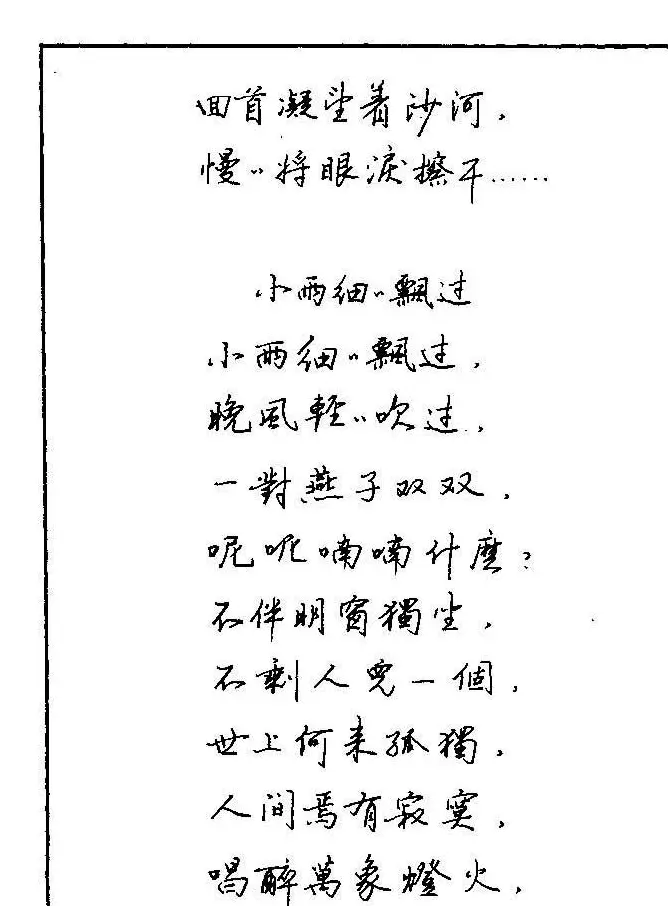 回首凝望着沙河，
慢〃將眼淚擦干……
小雨细〃飄过
小雨细〃飄过，
晚風輕〃吹过，
一對燕子双双，
呢呢喃喃什麽？
不伴明窗獨坐，
不剩人兒一個，
世上何来孤獨，
人間焉有寂寞，
唱醉萬象燈火，